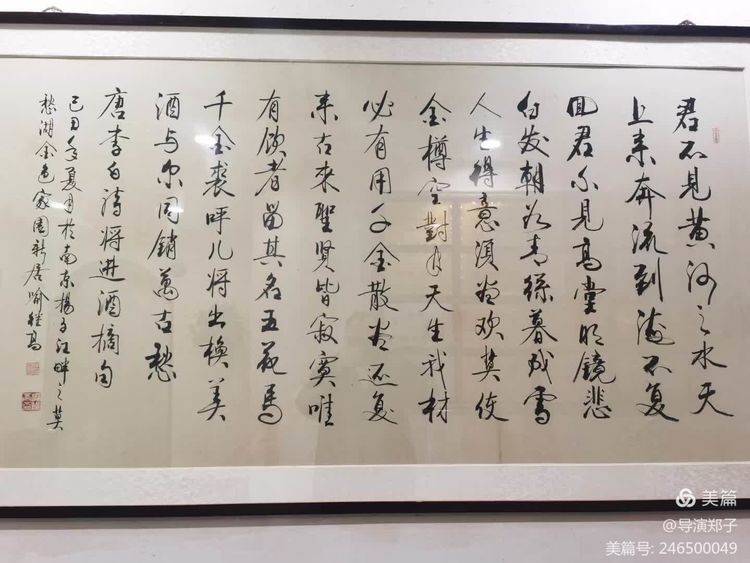 君不见黄河之水天
上来奔流到海不复
回君不见高堂明镜悲
白发朝如青丝暮成雪
人生得意须尽欢莫使
金樽空對月天生我材
必有用千金散尽还复
来古来聖贤皆寂寞唯
有饮者留其名五花馬
千金裘呼儿将出换美
酒与尔同銷萬古愁
唐李白诗将进酒摘句
己丑年夏月于南京揚子江畔之莫
愁湖金色家園新居喻继高
美篇
@导演郑子
美篇号: 246500049